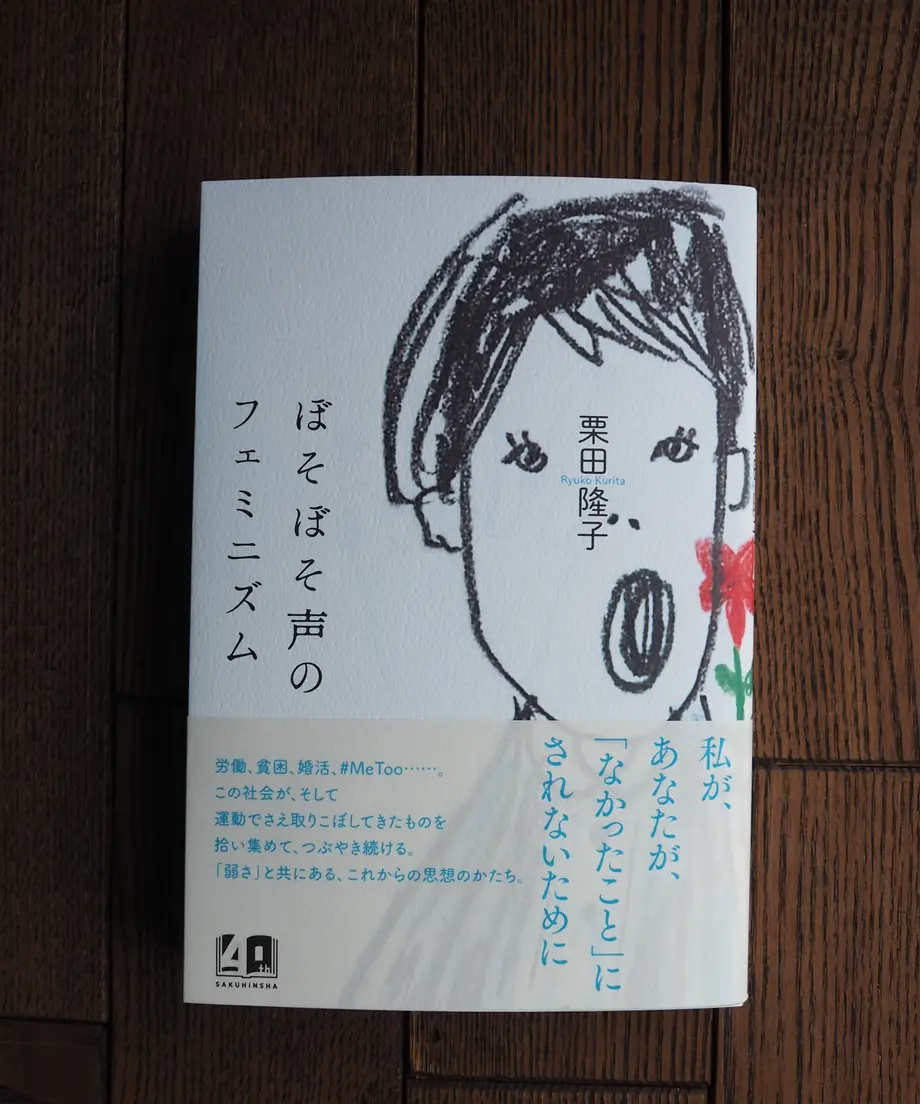 ぼそぼそ声の
フェミニズム
栗田隆子
Ryuko Kurita
私が、
あなたが、
「なかったこと」に
されないために
労働、貧困、婚活、#MeToo……。
この社会が、そして
運動でさえ取りこぼしてきたものを
拾い集めて、つぶやき続ける。
「弱さ」と共にある、これからの思想のかたち。
40th
SAKUHINSHA